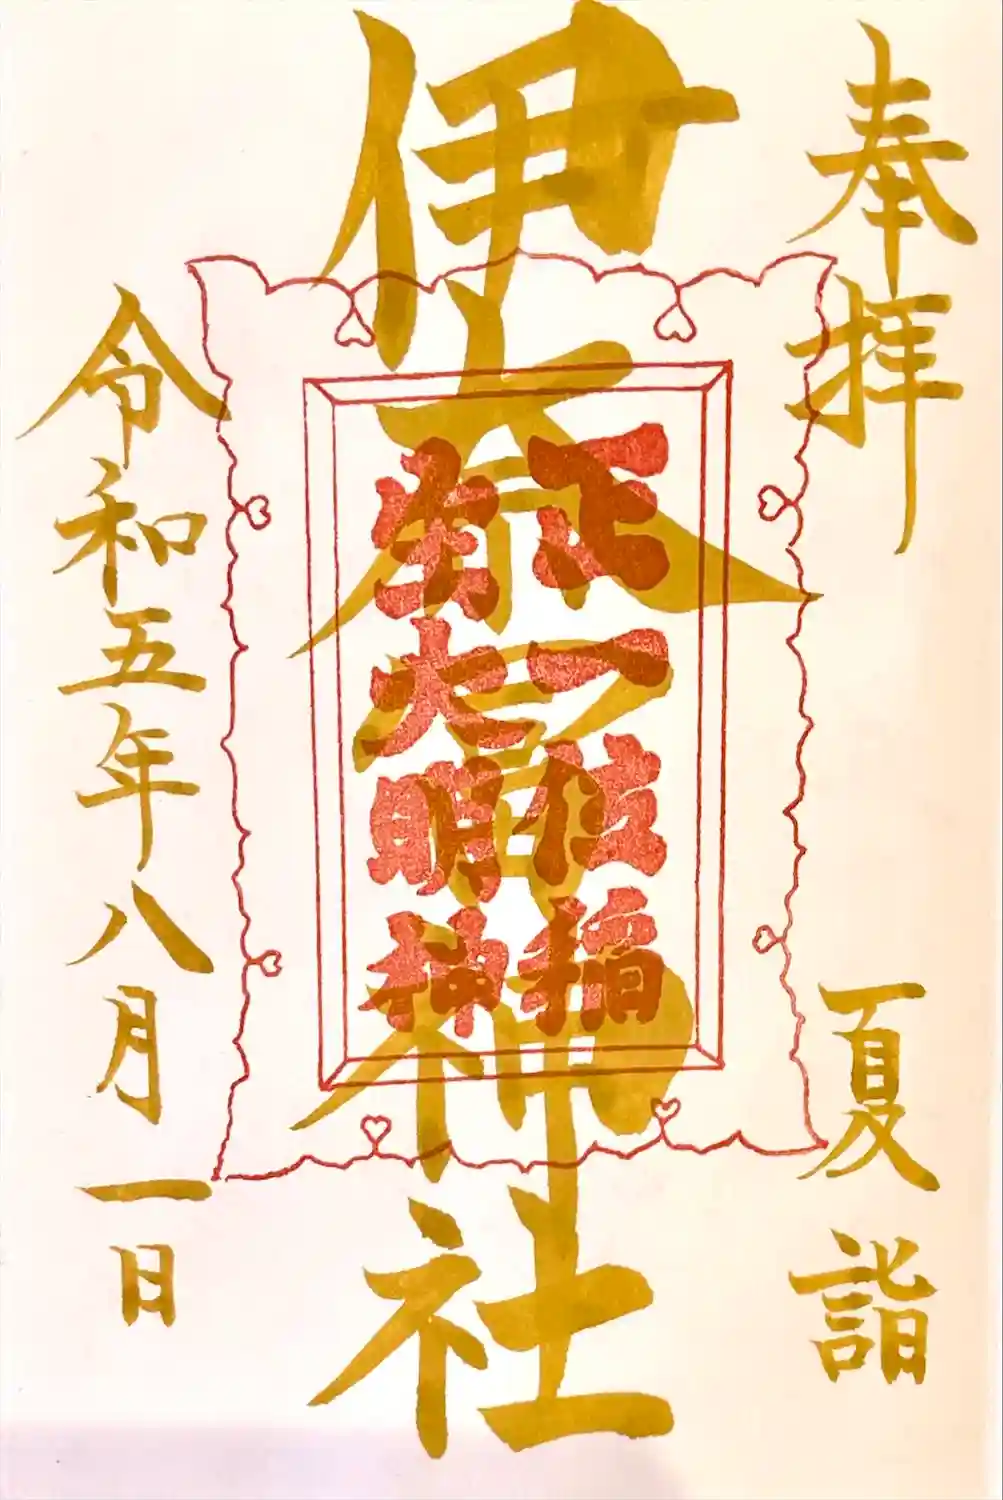 奉拝
夏詣
伊奈冨神社
正一位稲
生大明神
令和五年八月一日